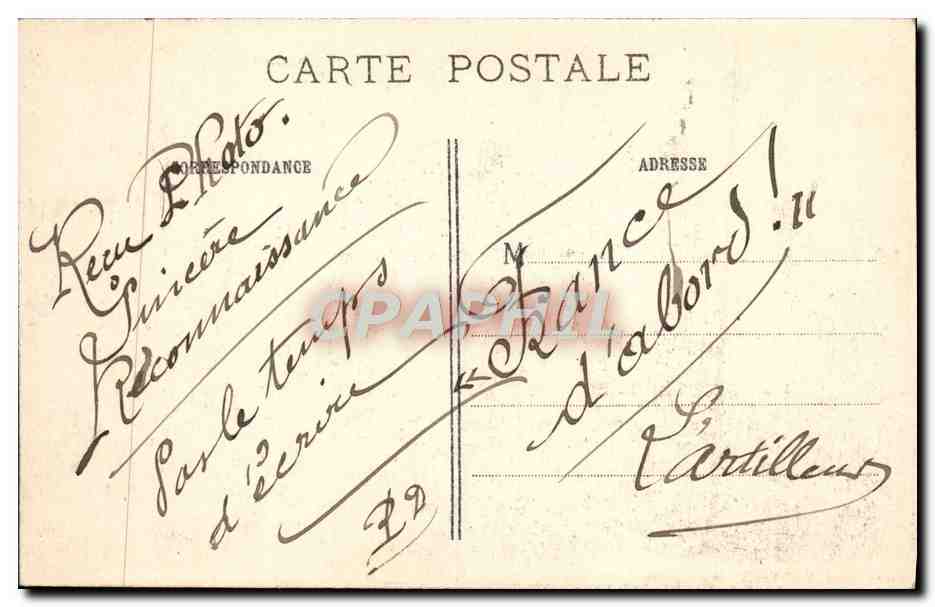 CARTE POSTALE
CORRESPONDANCE
Recu Photo.
Sincère
Reconnaissance
Pas le temps
d'écrire
RD
ADRESSE
M
"France
d'abord!"
L'artilleur
CPAPHIL